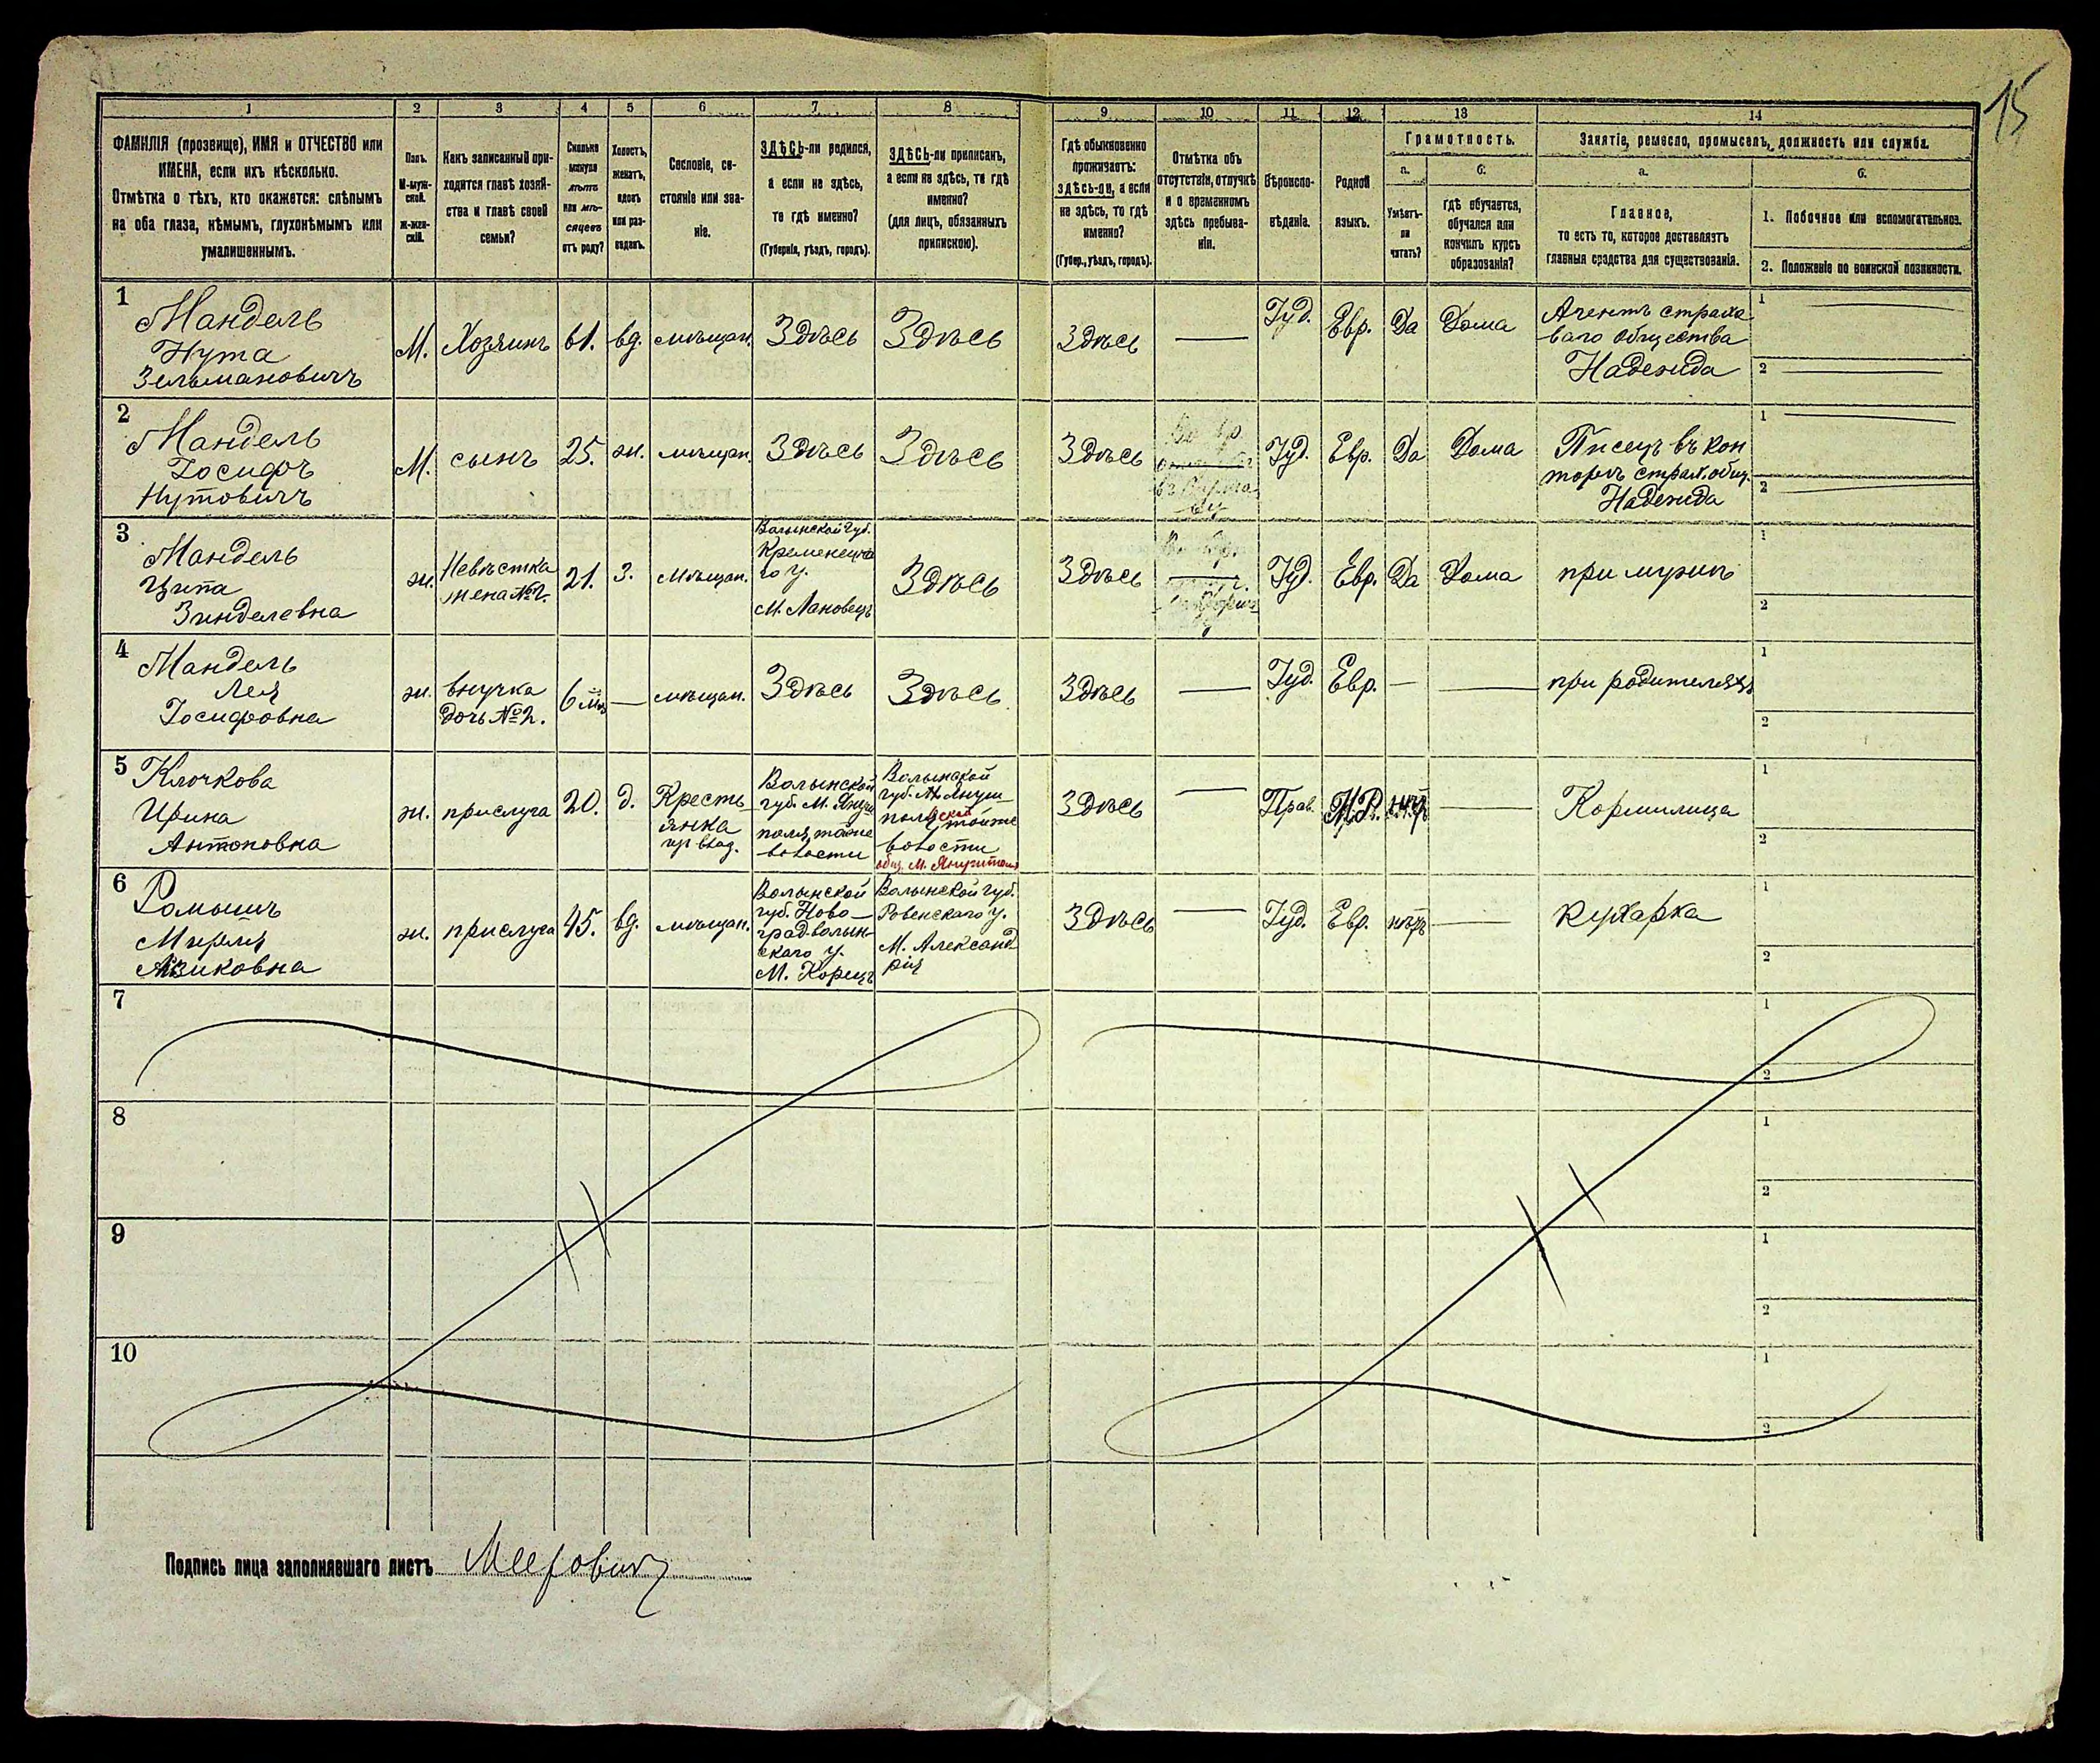 15
1 2 3 4 5 6 7 8 9 10 11 12 13 14
ФАМИЛІЯ (прозвище), ИМЯ и ОТЧЕСТВО или
ИМЕНА, если ихъ нѣсколько.
Отмѣтка о тѣхъ, кто окажется: слѣпымъ
на оба глаза, нѣмымъ, глухонѣмымъ или
умалишеннымъ.
Полъ.
М-муж-
ской.
Ж-жен-
скій.
Какъ записанный при-
ходится главѣ хозяй-
ства и главѣ своей
семьи?
Сколько
минуло
лѣтъ
или мѣ-
сяцевъ
отъ роду?
Холостъ,
женатъ,
вдовъ
или раз-
веденъ.
Сословіе, со-
стояніе или зва-
ніе.
ЗДѢСЬ-ли родился,
а если не здѣсь,
то гдѣ именно?
(Губернія, уѣздъ, городъ).
ЗДѢСЬ-ли приписанъ,
а если не здѣсь, то гдѣ
именно?
(для лицъ, обязанныхъ
припискою).
Гдѣ обыкновенно
проживаетъ:
здѣсь-ли, а если
не здѣсь, то гдѣ
именно?
(Губер., уѣздъ, городъ).
Отмѣтка объ
отсутствіи, отлучкѣ
и о временномъ
здѣсь пребыва-
ніи.
Вѣроиспо-
вѣданіе.
Родной
языкъ.
Грамотность.
а.
Умѣетъ-
ли
читать?
б.
гдѣ обучается,
обучался или
кончилъ курсъ
образованія?
Занятіе, ремесло, промыселъ, должность или служба.
а.
Главное,
то есть то, которое доставляетъ
главныя средства для существованія.
б.
1. Побочное или вспомогательное.
2. Положеніе по воинской повинности.
1
Мандель
Нута
Зельмановичъ
М.
Хозяинъ
61.
вд.
мѣщан.
Здѣсь
Здѣсь
Здѣсь
—
Іуд.
Евр.
Да
Дома
Агентъ страхо
ваго общества
Надежда
1
2
2
Мандель
Іосифъ
Нутовичъ
М.
сынъ
25.
ж.
мѣщан.
Здѣсь
Здѣсь
Здѣсь
Іуд.
Евр.
Да
Дома
Писецъ въ кон
торѣ страх. общ.
Надежда
1
2
3
Мандель
Ципа
Зинделевна
ж.
Невѣстка
жена №2.
21.
З.
мѣщан.
Волынской губ.
Кременецка
го у.
М. Лановецъ
Здѣсь
Здѣсь
Іуд.
Евр.
Да
Дома
при мужѣ
1
2
4
Мандель
Лея
Іосифовна
ж.
внучка
дочь №2.
6 м
—
мѣщан.
Здѣсь
Здѣсь
Здѣсь
—
Іуд.
Евр.
—
—
при родителяхъ
1
2
5
Клочкова
Ирина
Антоновна
ж.
прислуга
20.
д.
Кресть-
янка
Волынской
губ. М. Януш
поля, тойже
волости
Волынской
губ. М. Януш-
поля, тойже
волости
Здѣсь
—
Прав.
нѣтъ
—
Кормилица
1
2
6
Мирля
Айзиковна
ж.
прислуга
45.
вд.
мѣщан.
Волынской
губ. Ново-
град-волын-
скаго у.
М. Корецъ
Волынской губ.
Ровенскаго у.
М. Александ-
рія
Здѣсь
—
Іуд.
Евр.
нѣтъ
—
кухарка
1
2
7
1
2
8
1
2
9
1
2
10
1
2
Подпись лица заполнявшаго листъ Меерович